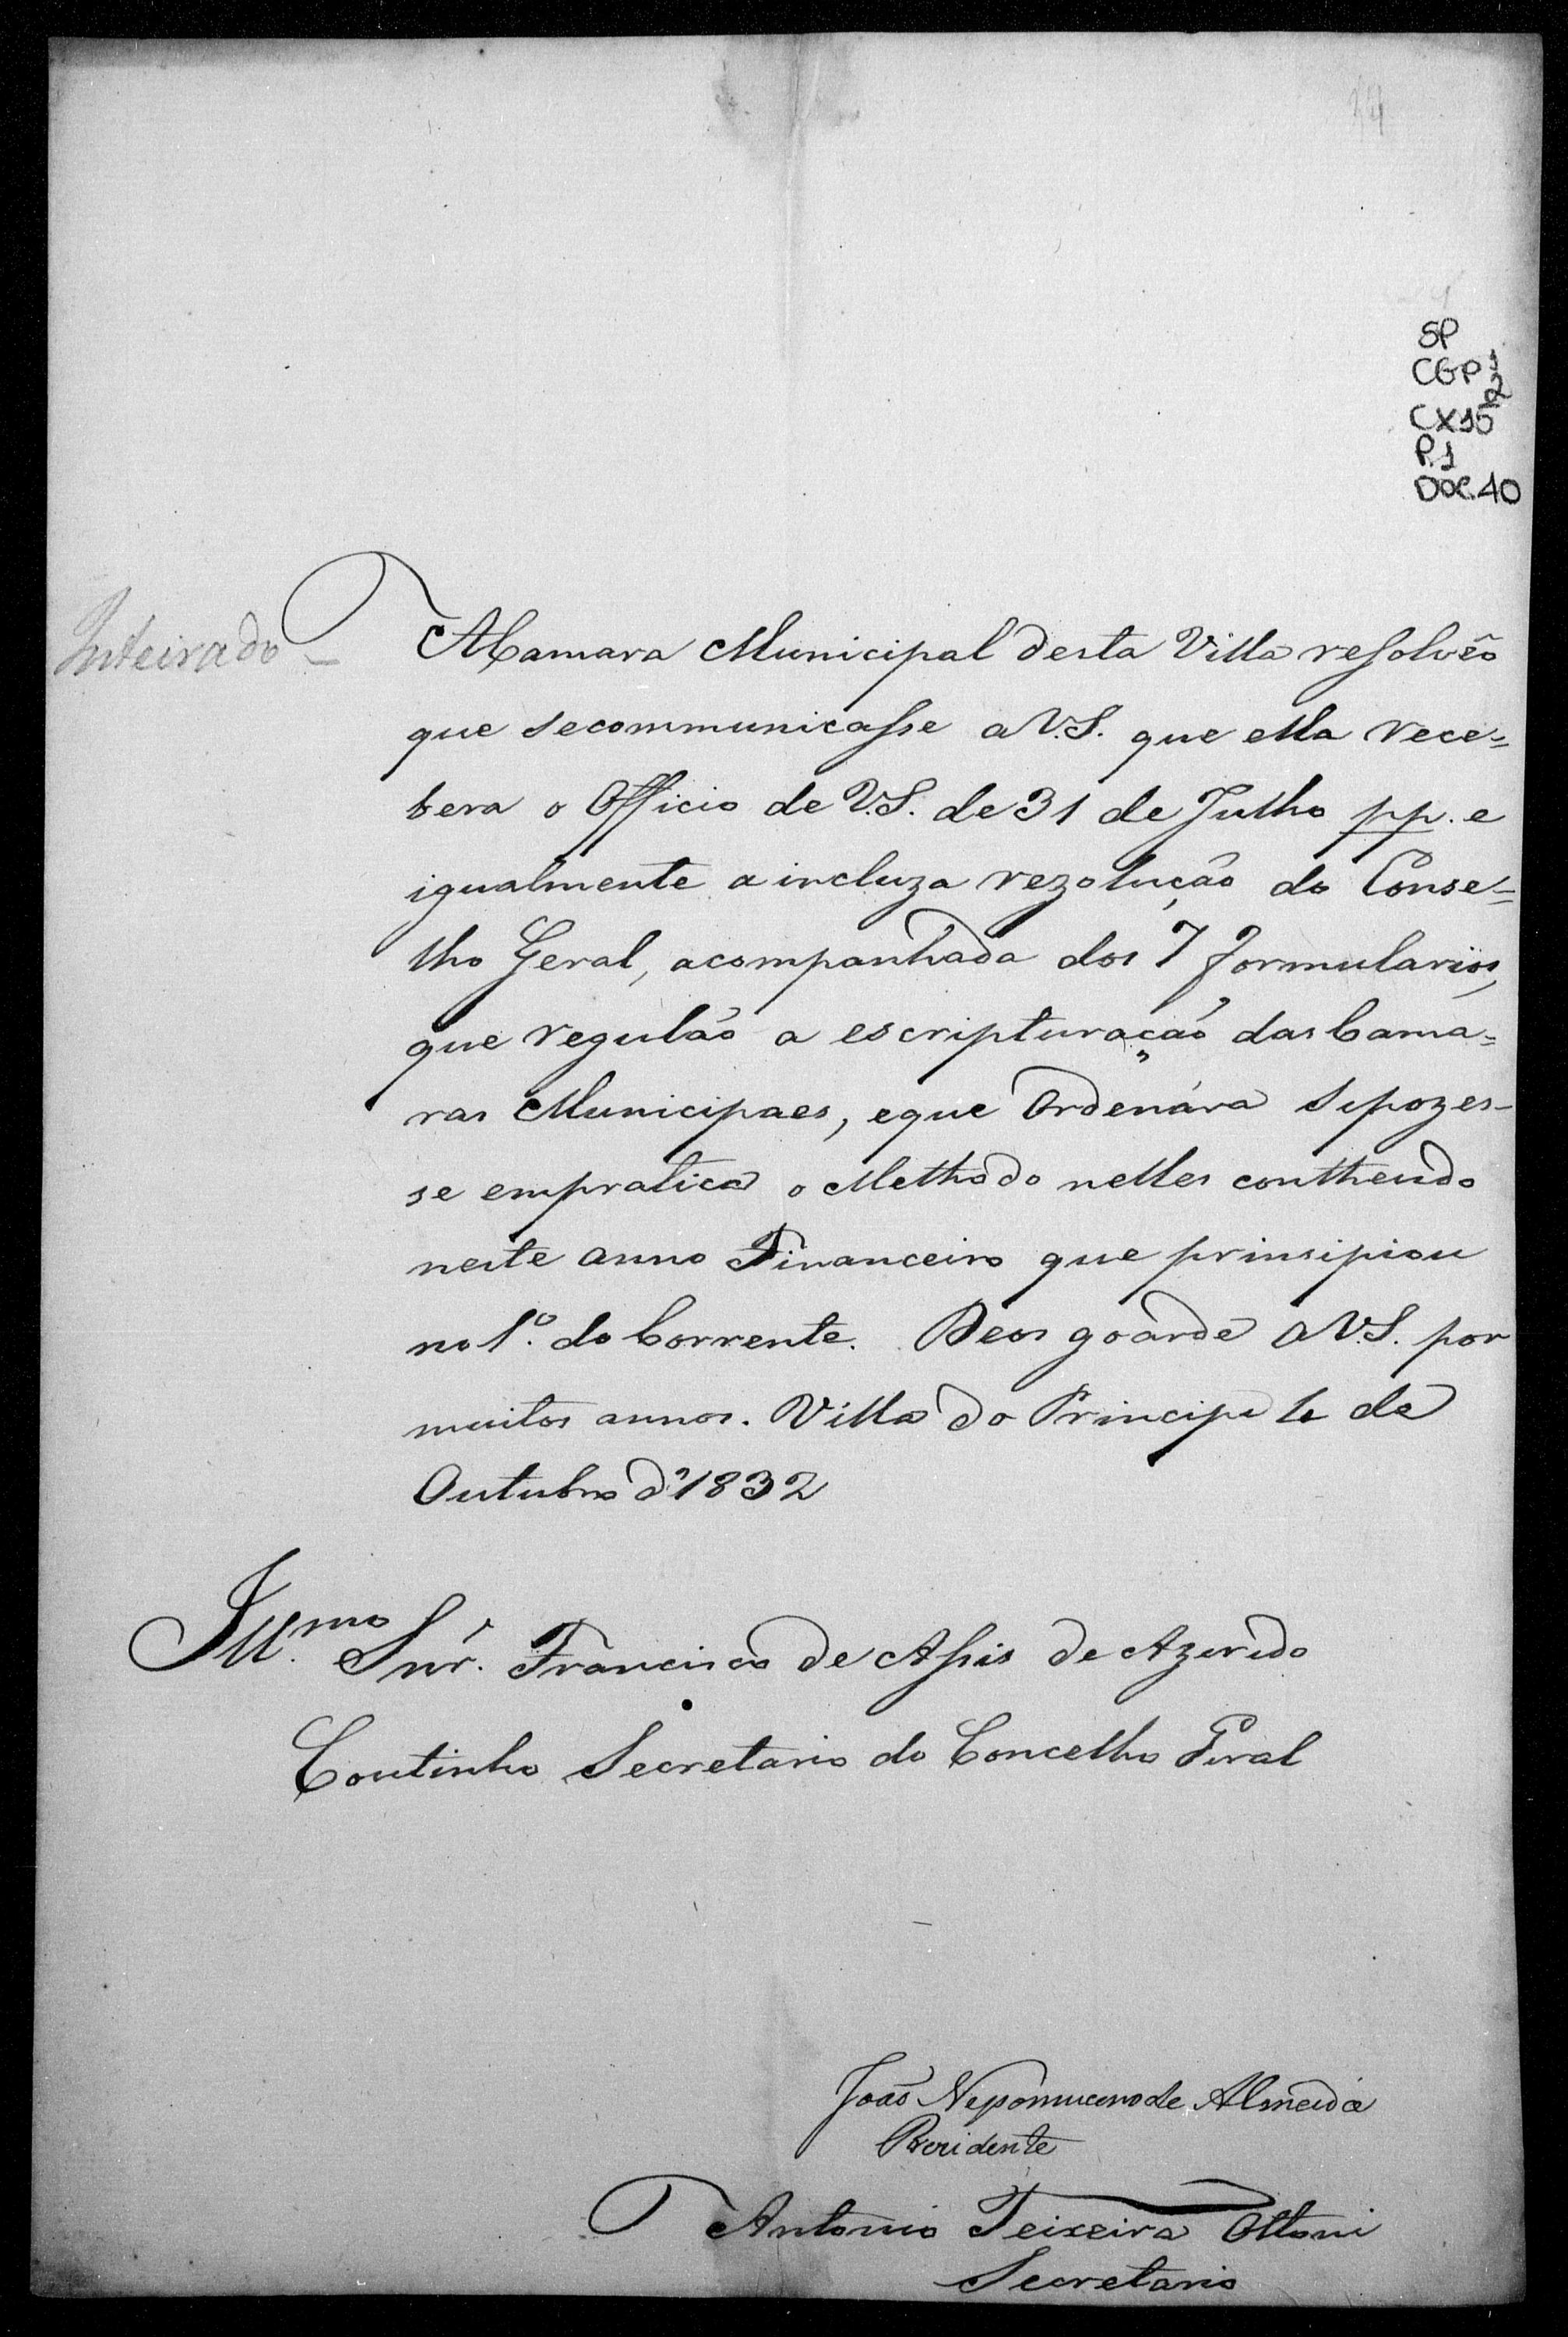 14
SP
CGP 1/2
CX15
P.1
DOC.40
Inteirado
ACamara Municipal desta Villa resolvêo
que secommunicasse aV.S. que ella rece=
bera o Officio de V.S. de 31 de Julho pp. e
igualmente a incluza rezolução do Conse=
lho Geral, acompanhada dos 7 formularios,
que regulão a escripturação das Cama=
ras Municipaes, eque Ordenára sepozes-
se empratica o Methodo nelles contheudo
neste anno Financeiro que principiou
no 1.º do Corrente. Deos goarde aV.S. por
muitos annos. Villa do Principe de
Outubro d'1832
Ill.mo Snr. Francisco de Assis de Azeredo
Coutinho Secretario do Concelho Geral
João Nepomuceno de Almeida
Prezidente
Antonio Teixeira Ottoni
Secretario